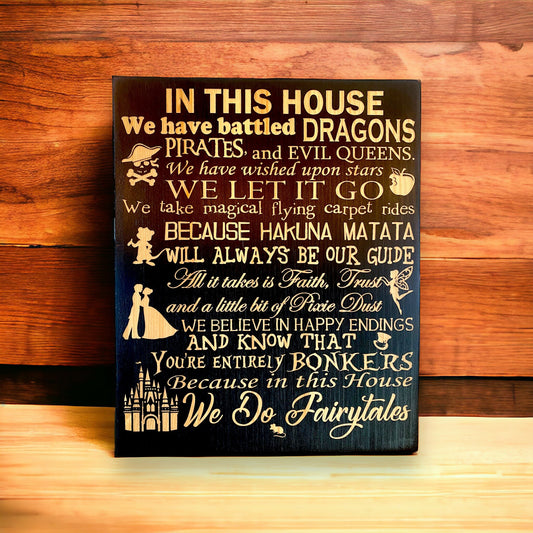 IN THIS HOUSE
We have battled DRAGONS
PIRATES, and EVIL QUEENS.
We have wished upon stars
WE LET IT GO
We take magical flying carpet rides
BECAUSE HAKUNA MATATA
WILL ALWAYS BE OUR GUIDE
All it takes is Faith, Trust
and a little bit of Pixie Dust
WE BELIEVE IN HAPPY ENDINGS
AND KNOW THAT
YOU'RE ENTIRELY BONKERS
Because in this House
We Do Fairytales